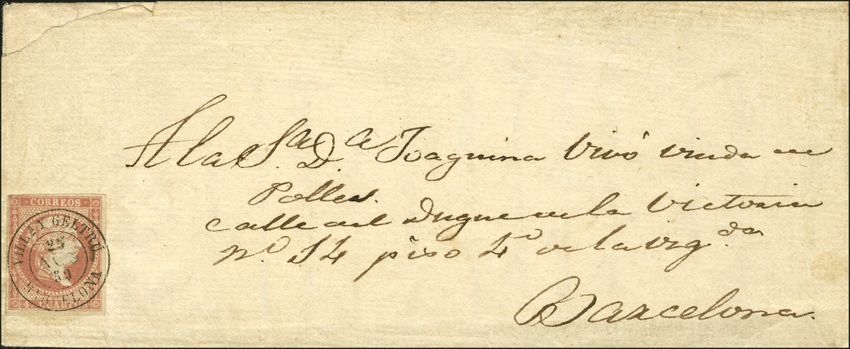 A la S.ra D.a Joaquina Vivó viuda de
Polles.
calle del Duque de la Victoria
N.o 14 piso 4.o de la izq.da
Barcelona.
CORREOS
VILLA GELTRÚ
25
59
BARCELONA